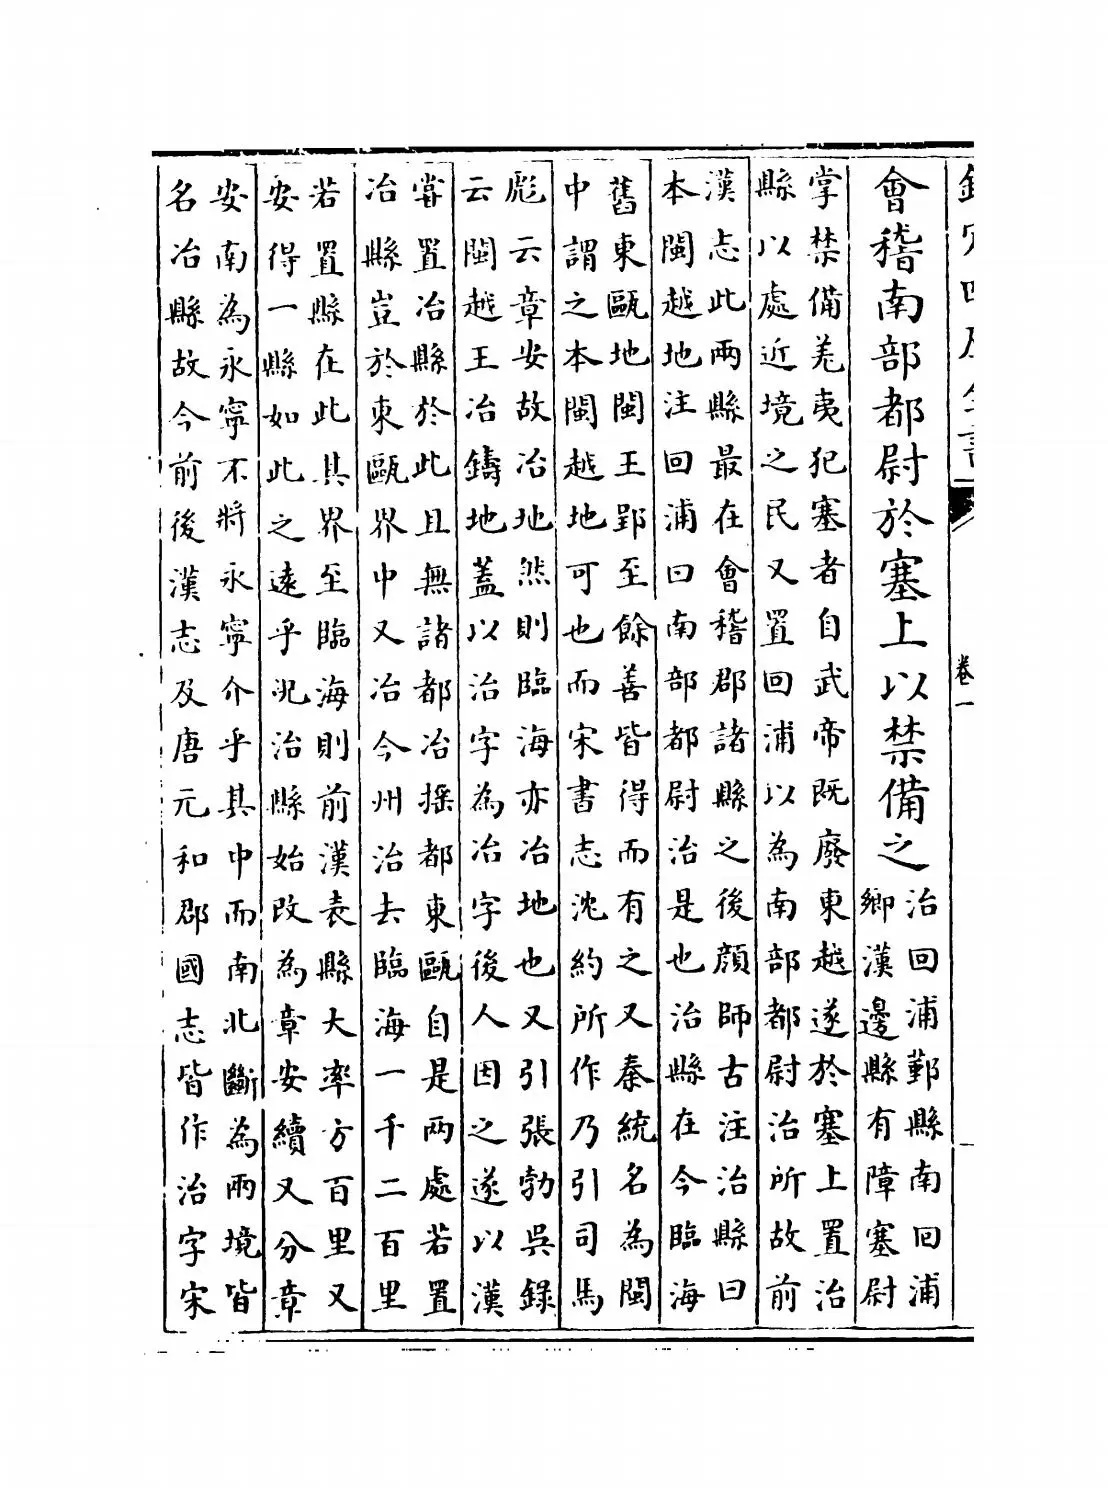 欽定四庫全書
卷一
會稽南部都尉於塞上以禁備之
治回浦鄞縣南回浦
鄉漢邊縣有障塞尉
掌禁備羌夷犯塞者自武帝既廢東越遂於塞上置治
縣以處近境之民又置回浦以為南部都尉治所故前
漢志此兩縣最在會稽郡諸縣之後顔師古注治縣曰
本閩越地注回浦曰南部都尉治是也治縣在今臨海
舊東甌地閩王郢至餘善皆得而有之又秦統名為閩
中謂之本閩越地可也而宋書志沈約所作乃引司馬
彪云章安故冶地然則臨海亦冶地也又引張勃吳錄
云閩越王冶鑄地蓋以治字為冶字後人因之遂以漢
甞置冶縣於此且無諸都冶揺都東甌自是兩處若置
冶縣豈於東甌界中又冶今州治去臨海一千二百里
若置縣在此其界至臨海則前漢表縣大率方百里又
安得一縣如此之遠乎况治縣始改為章安續又分章
安南為永寧不將永寧介乎其中而南北斷為兩境皆
名冶縣故今前後漢志及唐元和郡國志皆作治字宋